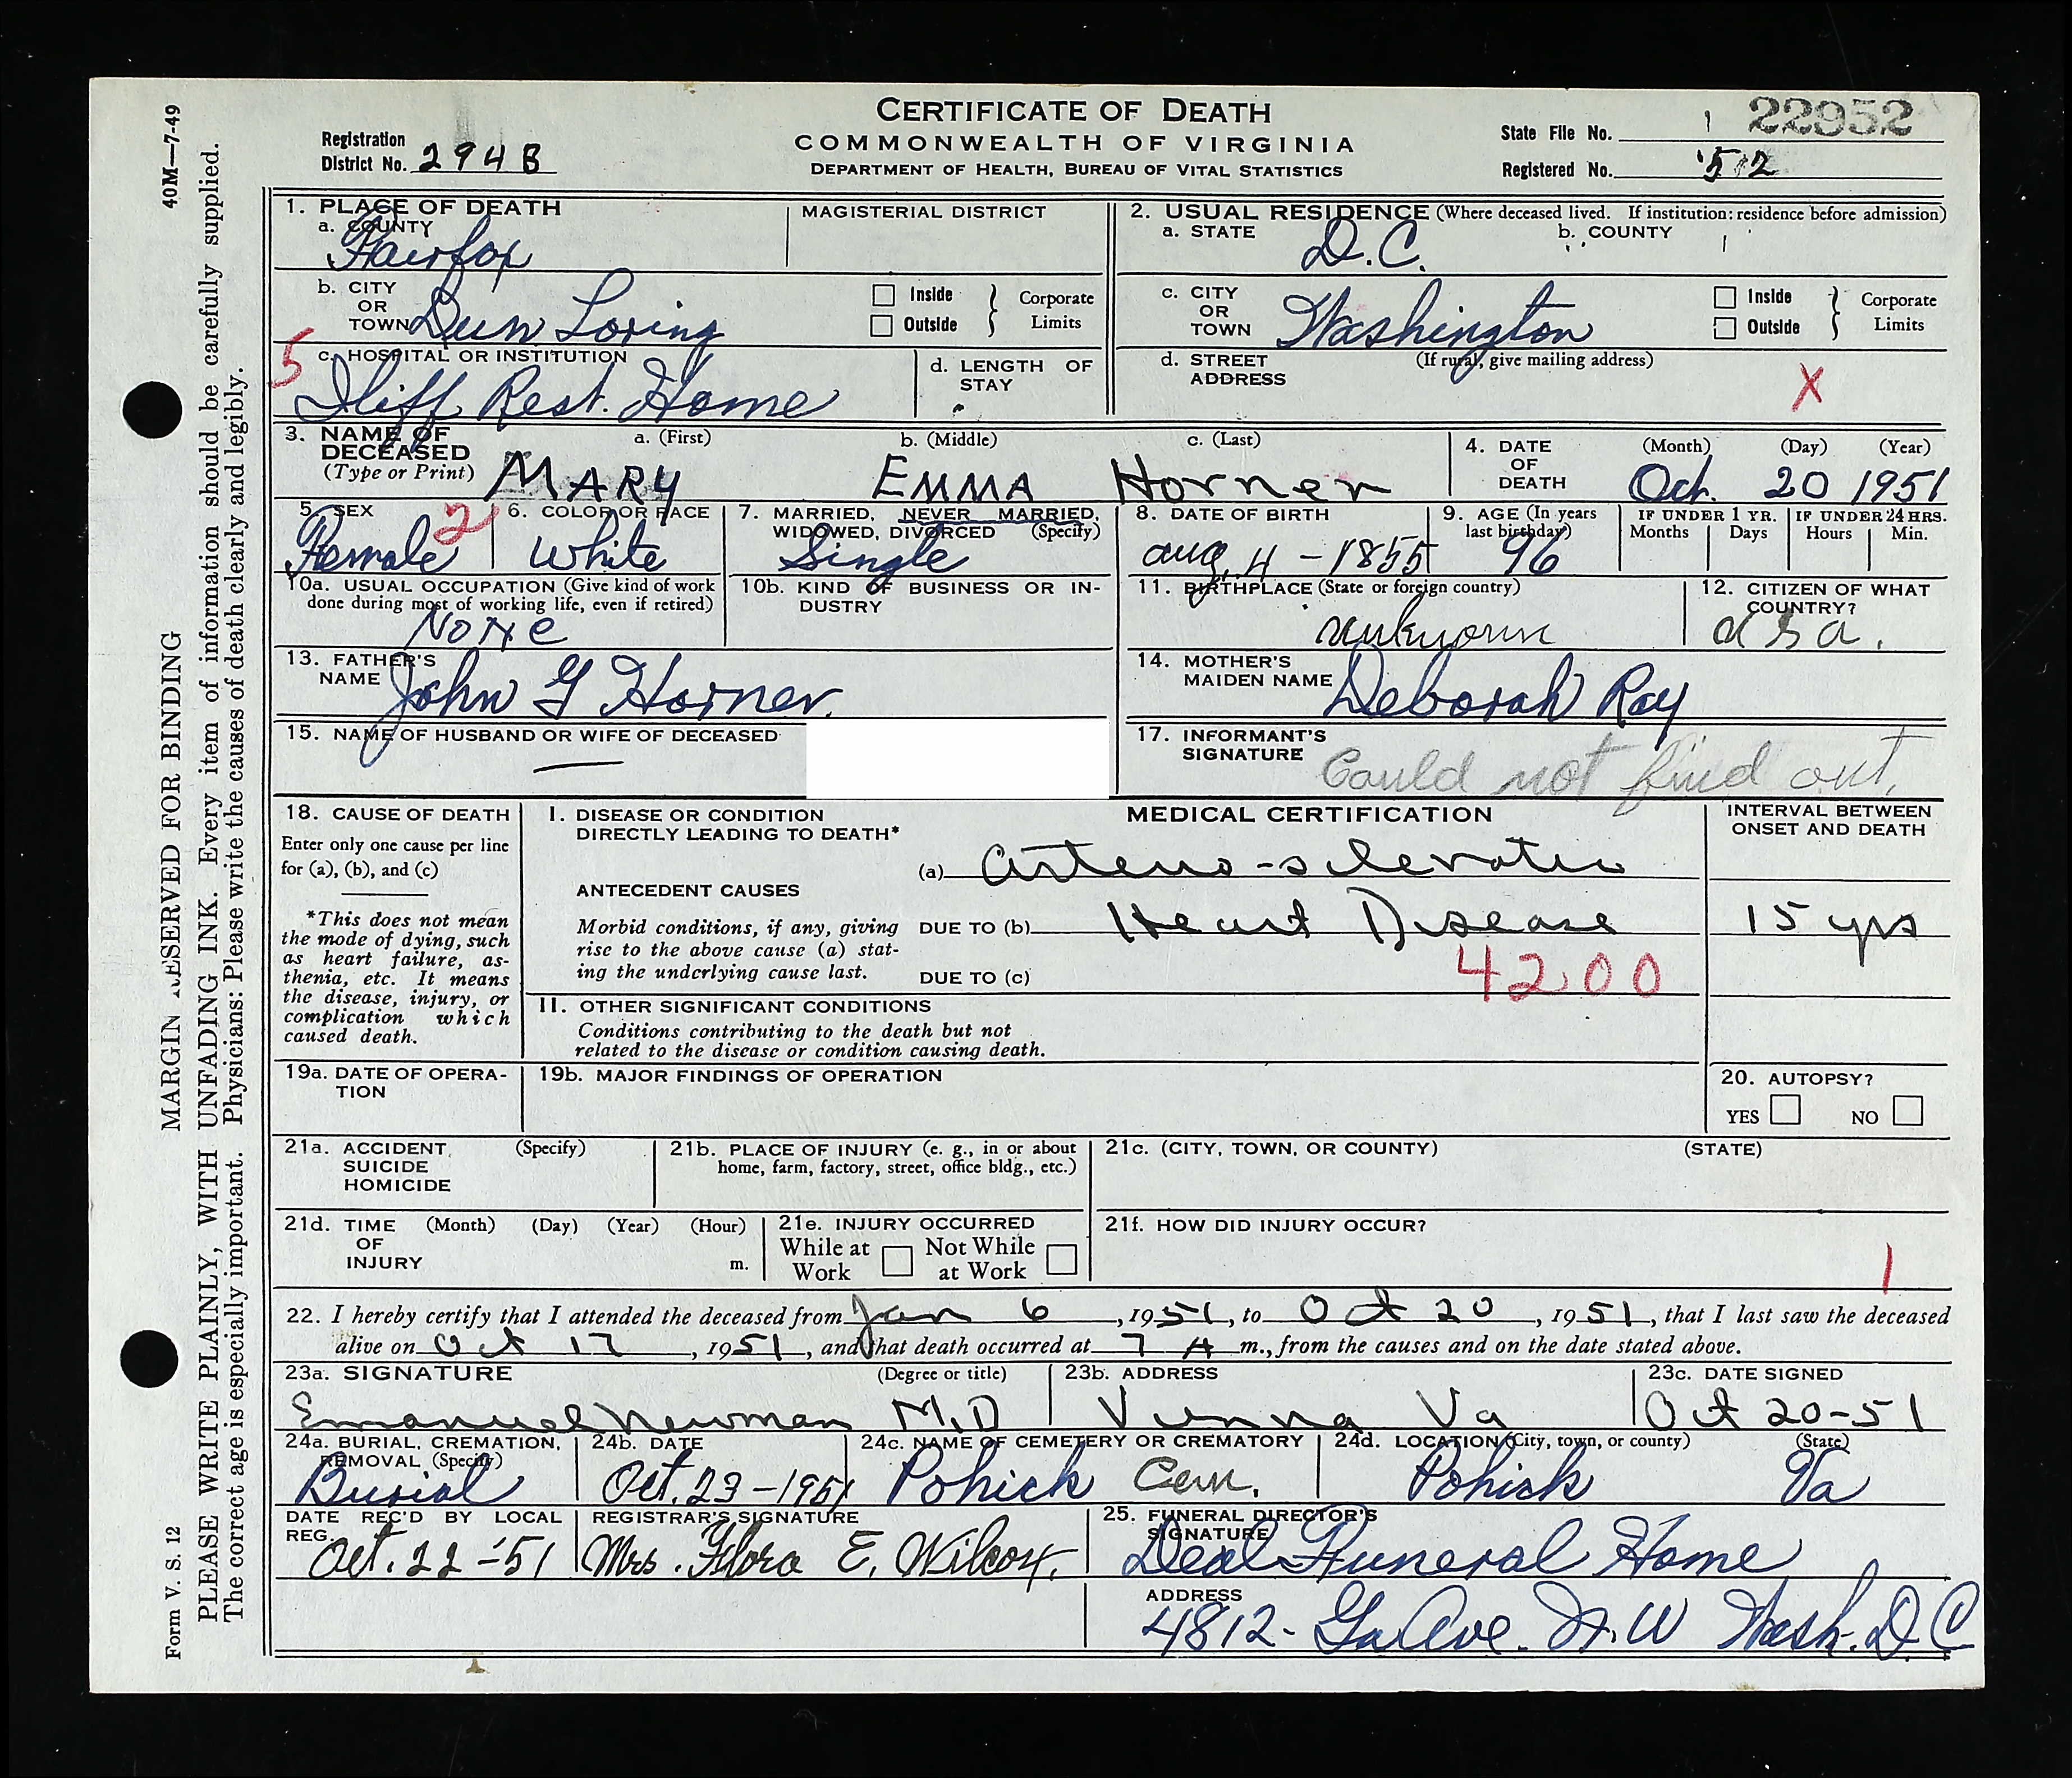 40M—7-49
CERTIFICATE OF DEATH
COMMONWEALTH OF VIRGINIA
DEPARTMENT OF HEALTH, BUREAU OF VITAL STATISTICS
Registration
District No. 294B
State File No. 22952
Registered No. 512
MARGIN RESERVED FOR BINDING
PLEASE WRITE PLAINLY, WITH UNFADING INK. Every item of information should be carefully supplied.
The correct age is especially important. Physicians: Please write the causes of death clearly and legibly.
Form V. S. 12
1. PLACE OF DEATH
a. COUNTY
Fairfax
MAGISTERIAL DISTRICT
2. USUAL RESIDENCE (Where deceased lived. If institution: residence before admission)
a. STATE
D.C.
b. COUNTY
b. CITY OR TOWN Dun Loring
Inside
Outside
Corporate Limits
c. CITY OR TOWN Washington
Inside
Outside
Corporate Limits
5
c. HOSPITAL OR INSTITUTION
Iliff Rest. Home
d. LENGTH OF STAY
d. STREET ADDRESS
(If rural, give mailing address)
X
3. NAME OF DECEASED
(Type or Print)
a. (First)
MARY
b. (Middle)
EMMA
c. (Last)
Horner
4. DATE OF DEATH
(Month) (Day) (Year)
Oct. 20 1951
5. SEX
Female
2
6. COLOR OR RACE
White
7. MARRIED, NEVER MARRIED, WIDOWED, DIVORCED (Specify)
Single
8. DATE OF BIRTH
Aug. 4 - 1855
9. AGE (In years last birthday)
96
IF UNDER 1 YR.
Months Days
IF UNDER 24 HRS.
Hours Min.
10a. USUAL OCCUPATION (Give kind of work done during most of working life, even if retired)
None
10b. KIND OF BUSINESS OR INDUSTRY
11. BIRTHPLACE (State or foreign country)
unknown
12. CITIZEN OF WHAT COUNTRY?
USA.
13. FATHER'S NAME
John G Horner.
14. MOTHER'S MAIDEN NAME
Deborah Ray
15. NAME OF HUSBAND OR WIFE OF DECEASED
—
17. INFORMANT'S SIGNATURE
Could not find out.
18. CAUSE OF DEATH
Enter only one cause per line
for (a), (b), and (c)
*This does not mean
the mode of dying, such
as heart failure, as-
thenia, etc. It means
the disease, injury, or
complication which
caused death.
I. DISEASE OR CONDITION
DIRECTLY LEADING TO DEATH*
MEDICAL CERTIFICATION
INTERVAL BETWEEN
ONSET AND DEATH
(a) Arterio-sclerotic
ANTECEDENT CAUSES
Morbid conditions, if any, giving
rise to the above cause (a) stat-
ing the underlying cause last.
DUE TO (b) Heart Disease
15 yrs
DUE TO (c)
4200
II. OTHER SIGNIFICANT CONDITIONS
Conditions contributing to the death but not
related to the disease or condition causing death.
19a. DATE OF OPERA-
TION
19b. MAJOR FINDINGS OF OPERATION
20. AUTOPSY?
YES NO
21a. ACCIDENT (Specify)
SUICIDE
HOMICIDE
21b. PLACE OF INJURY (e. g., in or about
home, farm, factory, street, office bldg., etc.)
21c. (CITY, TOWN, OR COUNTY) (STATE)
21d. TIME OF INJURY
(Month) (Day) (Year) (Hour)
m.
21e. INJURY OCCURRED
While at Work
Not While at Work
21f. HOW DID INJURY OCCUR?
1
22. I hereby certify that I attended the deceased from Jan 6, 1951, to Oct 20, 1951, that I last saw the deceased
alive on Oct 17, 1951, and that death occurred at 7 A m., from the causes and on the date stated above.
23a. SIGNATURE (Degree or title)
Emanuel Newman M.D
23b. ADDRESS
Vienna Va
23c. DATE SIGNED
Oct 20-51
24a. BURIAL, CREMATION,
REMOVAL (Specify)
Burial
24b. DATE
Oct. 23-1951
24c. NAME OF CEMETERY OR CREMATORY
Pohick Cem.
24d. LOCATION (City, town, or county) (State)
Pohick Va
DATE REC'D BY LOCAL REG.
Oct. 22-'51
REGISTRAR'S SIGNATURE
Mrs. Flora E. Wilcox.
25. FUNERAL DIRECTOR'S SIGNATURE
Deal Funeral Home
ADDRESS
4812- Ga Ave. N.W Wash. D.C